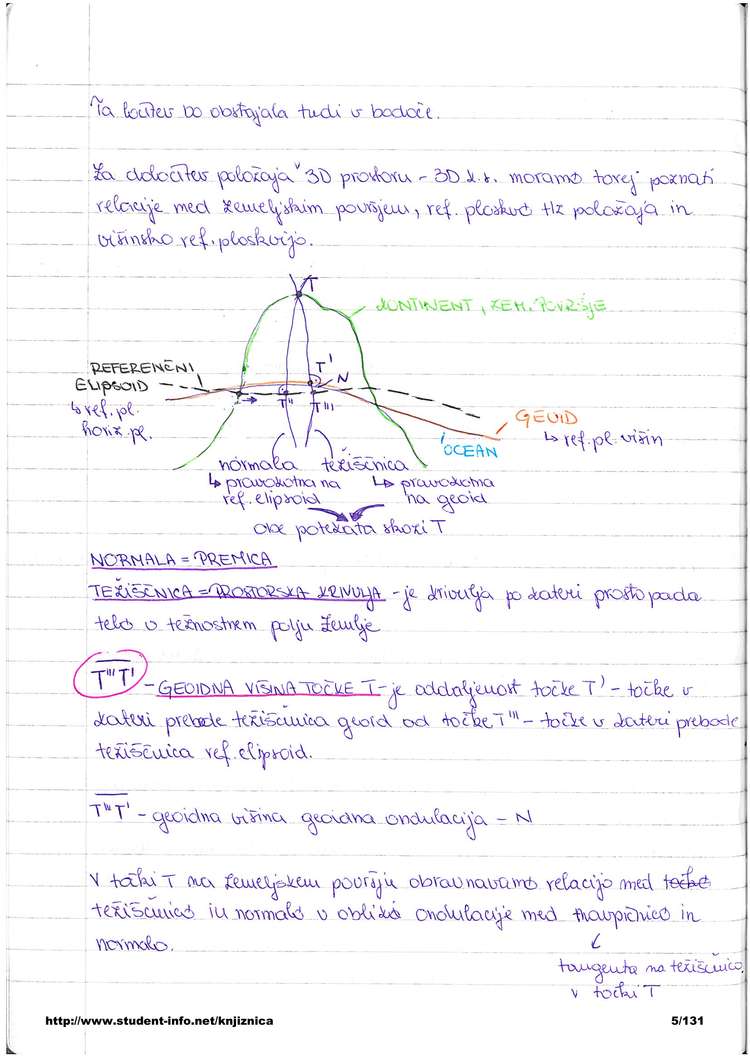 Ta ločitev bo obstajala tudi v bodoče.
Za določitev položaja v 3D prostoru - 3D k.s. moramo torej poznati
relacije med zemeljskim površjem, ref. ploskvo hz položaja in
višinsko ref. ploskvijo.
T
KONTINENT, ZEM. POVRŠJE
REFERENČNI
ELIPSOID
↳ ref. pl.
horiz. pl.
T'
N
T''
T'''
GEOID
↳ ref. pl. višin
OCEAN
normala težiščnica
↳ pravokotna na
ref. elipsoid
↳ pravokotna
na geoid
obe potekata skozi T
NORMALA = PREMICA
TEŽIŠČNICA = PROSTORSKA KRIVULJA - je krivulja po kateri prosto pada
telo v težnostnem polju Zemlje
T'''T' - GEOIDNA VIŠINA TOČKE T - je oddaljenost točke T' - točke v
kateri prebode težiščnica geoid od točke T''' - točke v kateri prebode
težiščnica ref. elipsoid.
T'''T' - geoidna višina geoidna ondulacija - N
V točki T na zemeljskem površju obravnavamo relacijo med točko
težiščnico in normalo v obliki ondulacije med navpičnico in
normalo.
tangenta na težiščnico
v točki T
http://www.student-info.net/knjiznica
5/131